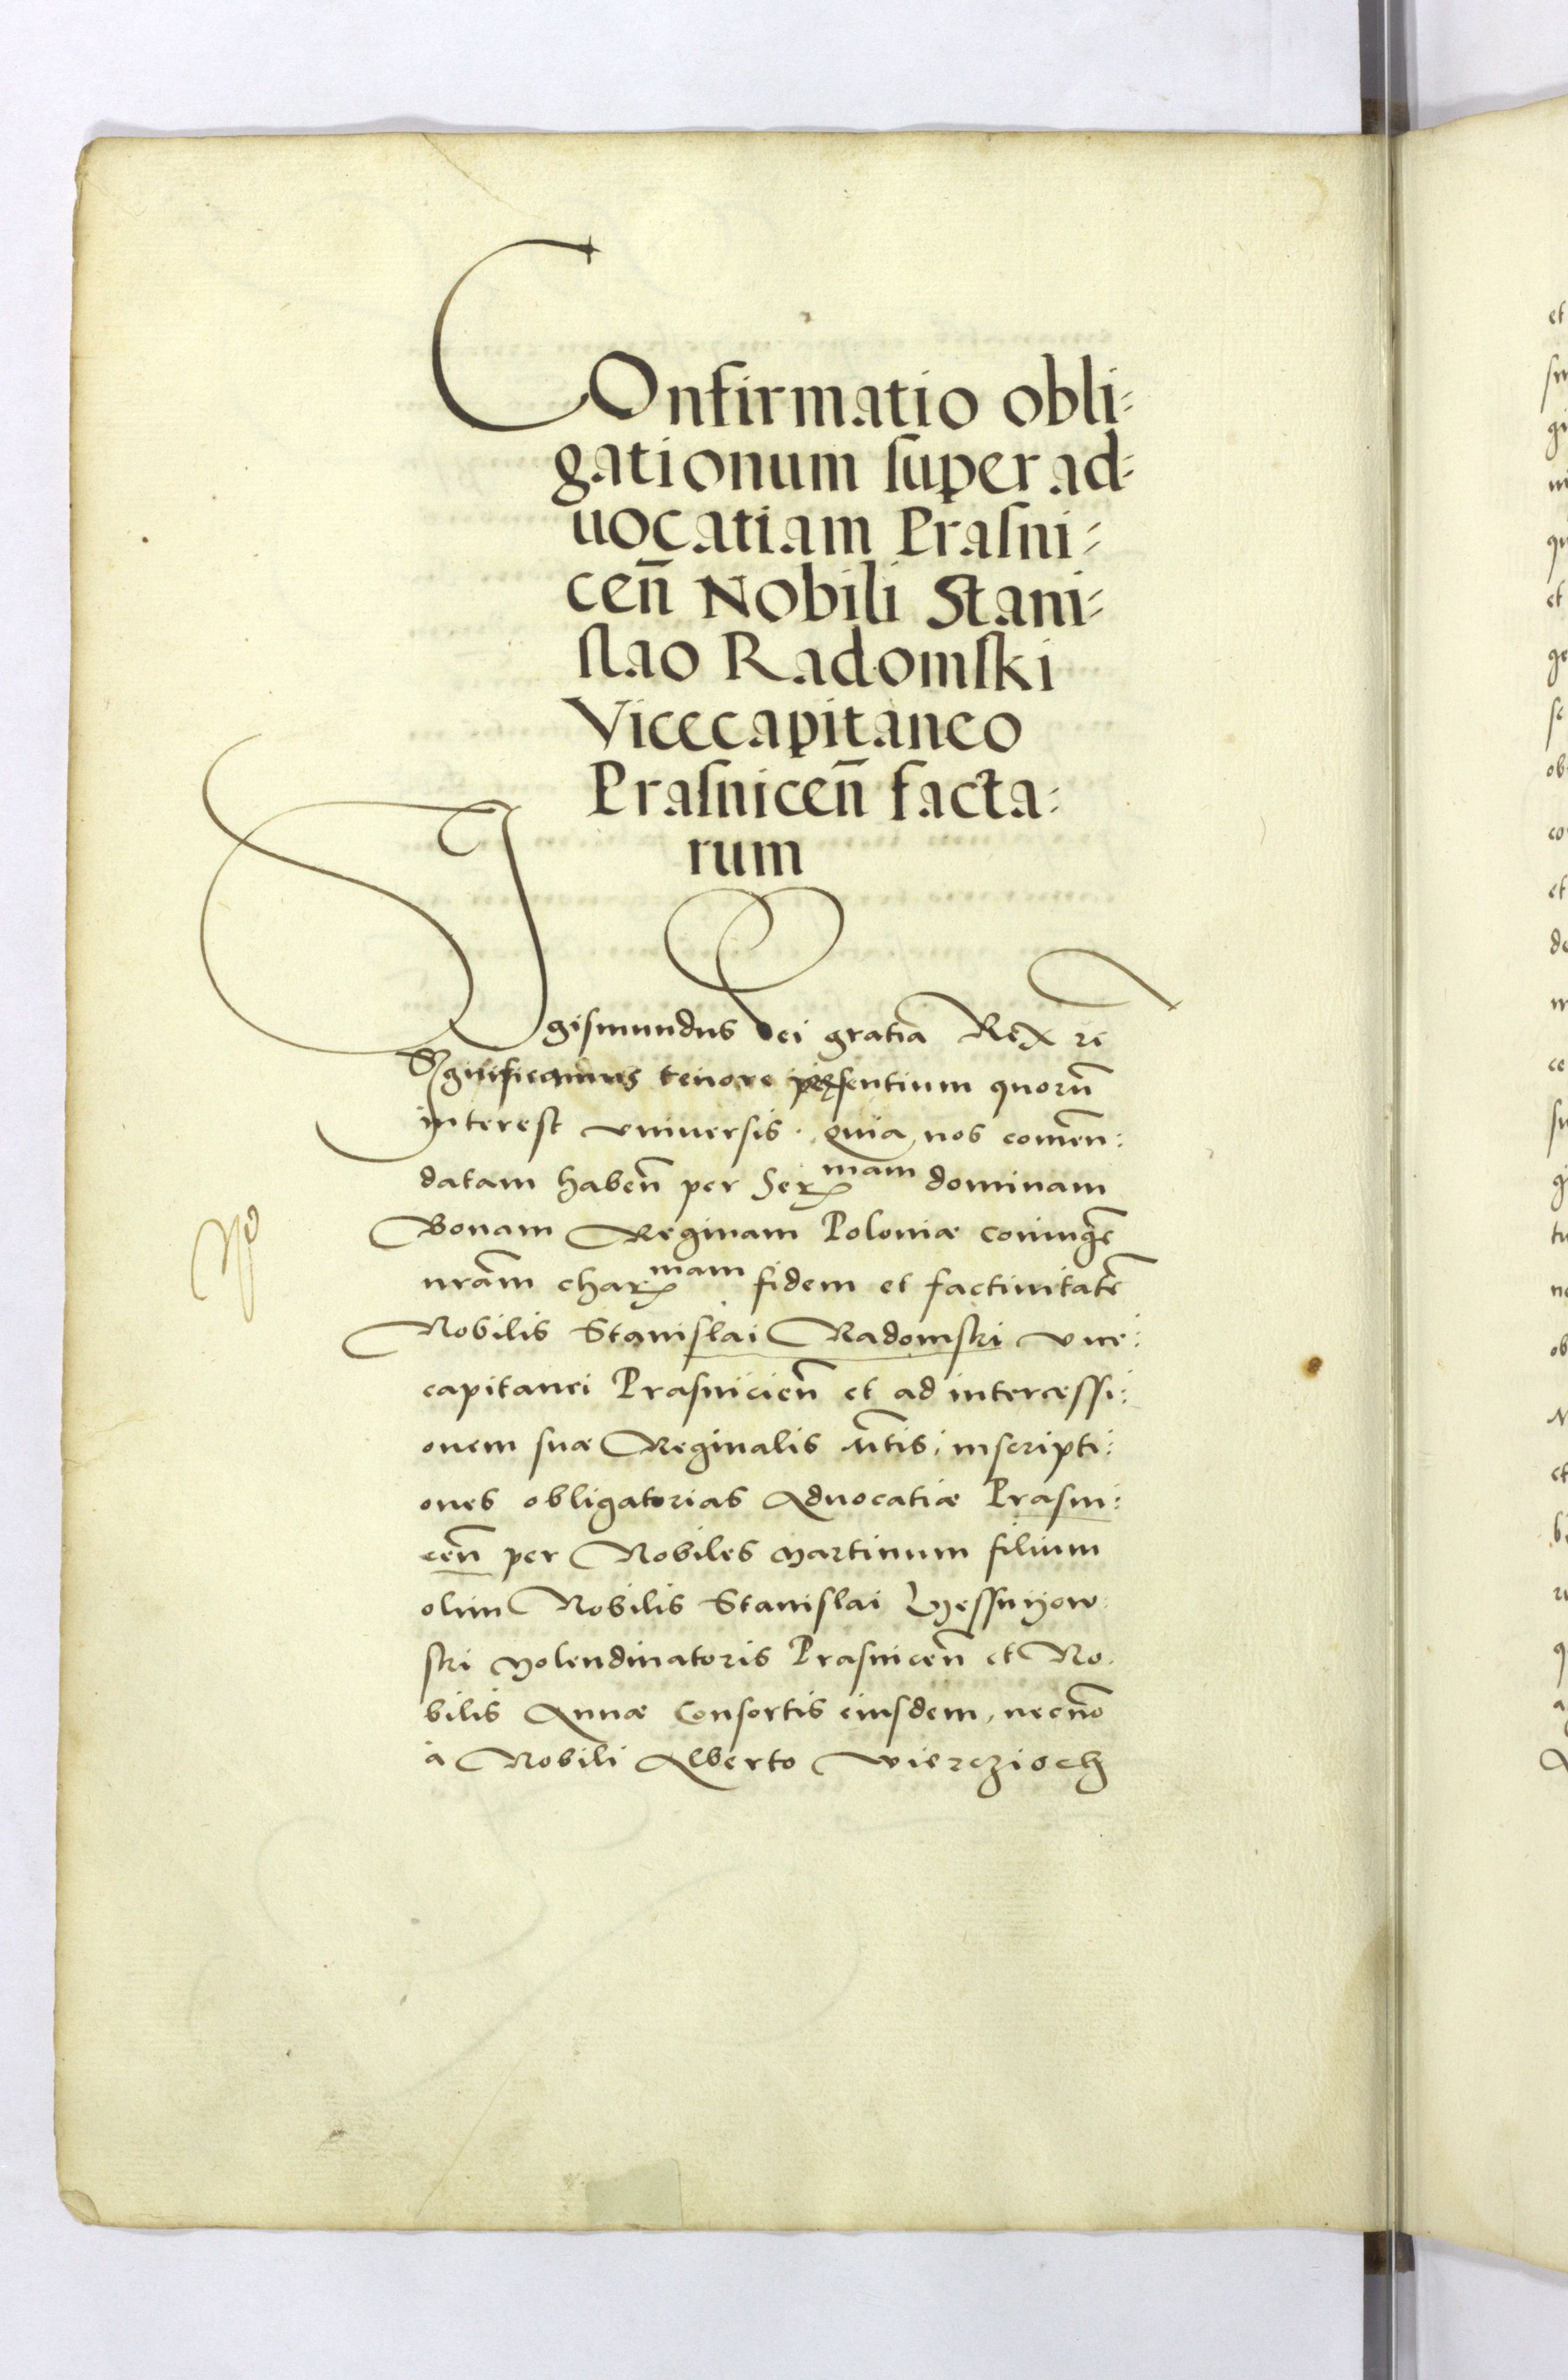 Confirmatio obli=
gationum super ad=
uocatiam Prasni=
cen̄ Nobili Stani=
slao Radomski
Vicecapitaneo
Prasnicen̄ facta=
rum
Sigismundus Dei gratia Rex ꝛc
Significamus tenore pręsentium quorū
interest vniuersis. quia nos com̄en:
datam haben̄ per Ser mam dominam
Bonam Reginam Poloniæ coniugē
nr̄am char mam fidem et factiuitatē
Nobilis Stanislai Radomski vice:
capitanei Prasnicien̄ et ad intercessi:
onem suæ Reginalis M̄tis, inscripti:
ones obligatorias Aduocatiæ Prasni:
cen̄ per Nobiles Martinum filium
olim Nobilis Stanislai
ski Molendinatoris Prasnicen̄ et No.
bilis Annæ Consortis eiusdem, necnō
a Nobili Alberto Vierczioch